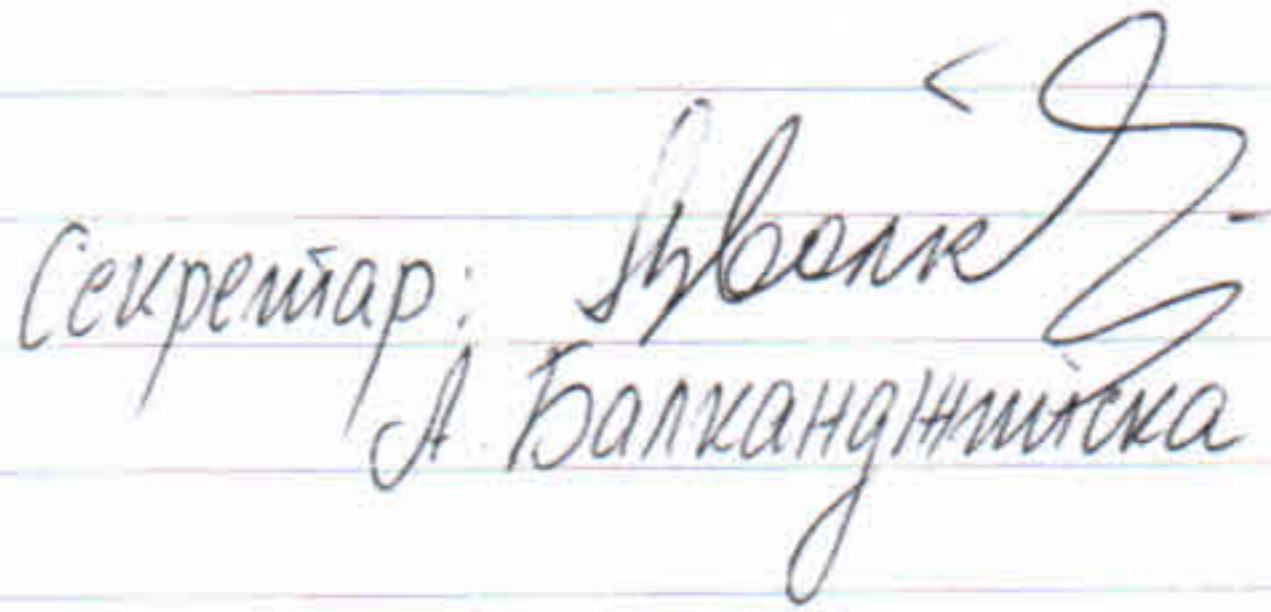 Секретар:
А. Балканджийска